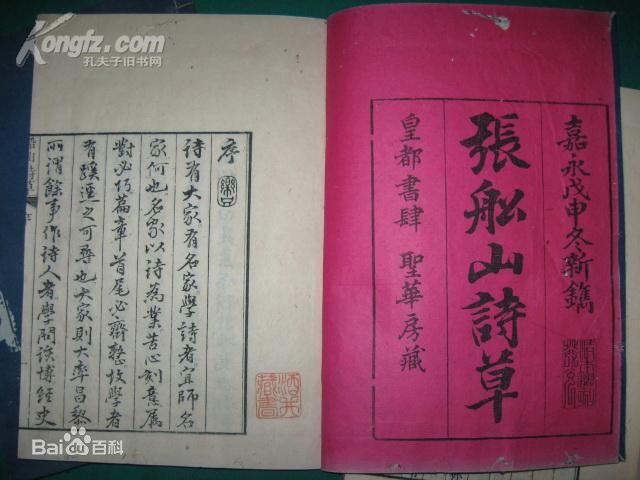 嘉永戊申冬新鐫
張舩山詩草
皇都書肆 聖華房藏
序
詩有大家有名家學詩者宜師名
家何也名家以詩為業苦心刻意屬
對必巧篇章首尾必齊整故學者
有蹊逕之可尋也大家則大率昌黎
所謂餘事作詩人者學問該博經史
Kongfz.com
孔夫子旧书网
Bai度百科